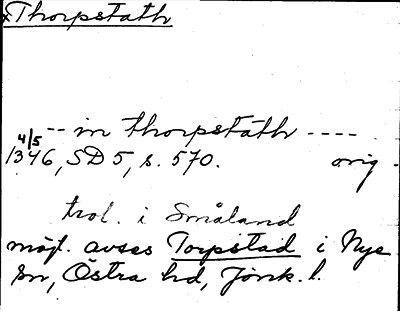 ×Thorpstath
-- in thorpstath ----
4/5
1346, SD 5, s. 570. orig.
trol. i Småland
möjl. avses Torpstad i Nye
sn, Östra hd, Jönk. l.